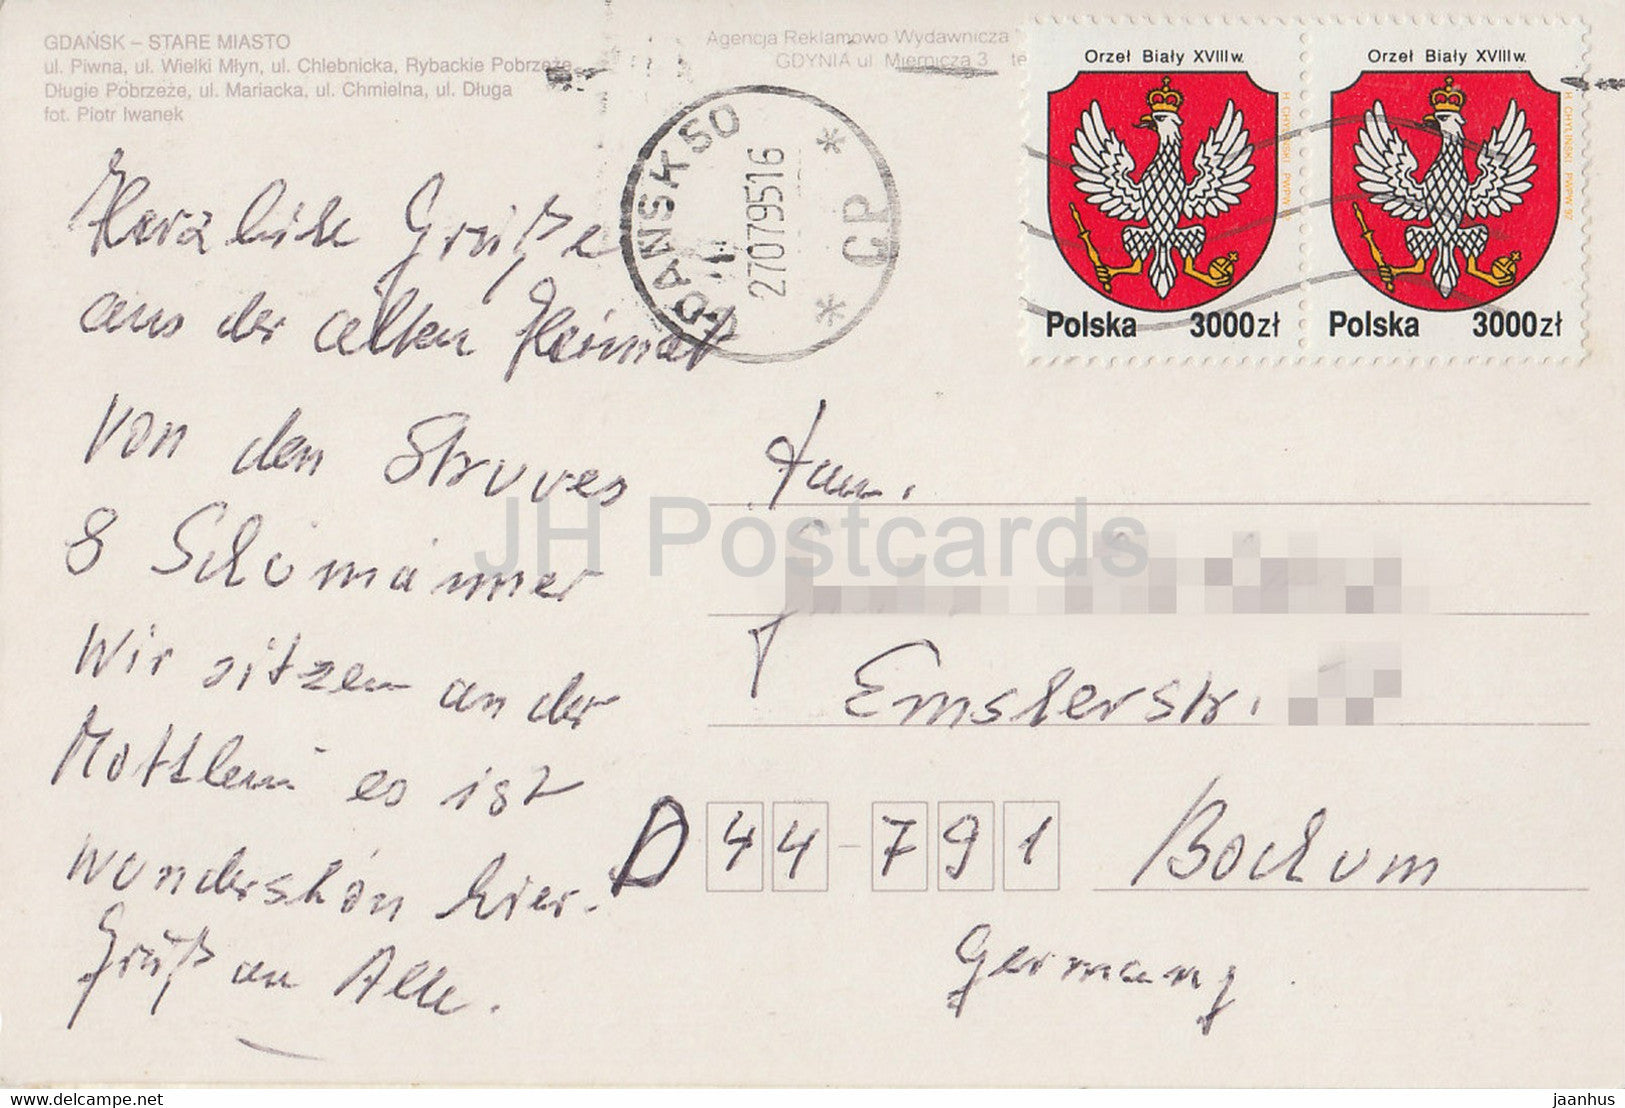 GDAŃSK – STARE MIASTO
ul. Piwna, ul. Wielki Młyn, ul. Chlebnicka, Rybackie Pobrzeże,
Długie Pobrzeże, ul. Mariacka, ul. Chmielna, ul. Długa
fot. Piotr Iwanek
Agencja Reklamowo Wydawnicza
GDYNIA ul. Miernicza 3 te
Orzeł Biały XVIII w.
H. CHYLIŃSKI PWPW
Polska 3000zł
Orzeł Biały XVIII w.
H. CHYLIŃSKI PWPW 92
Polska 3000zł
GDAŃSK 50
27079516
CP
Herzliche Grüße
aus der alten Heimat
von den Struves
& Schümänner
Wir sitzen an der
Mottlau es ist
wunderschön hier.
Gruß an Alle.
Fam.
Emsterstr.
D 44-791 Bochum
Germany.
JH Postcards
For sale on www.delcampe.net
jaanhus